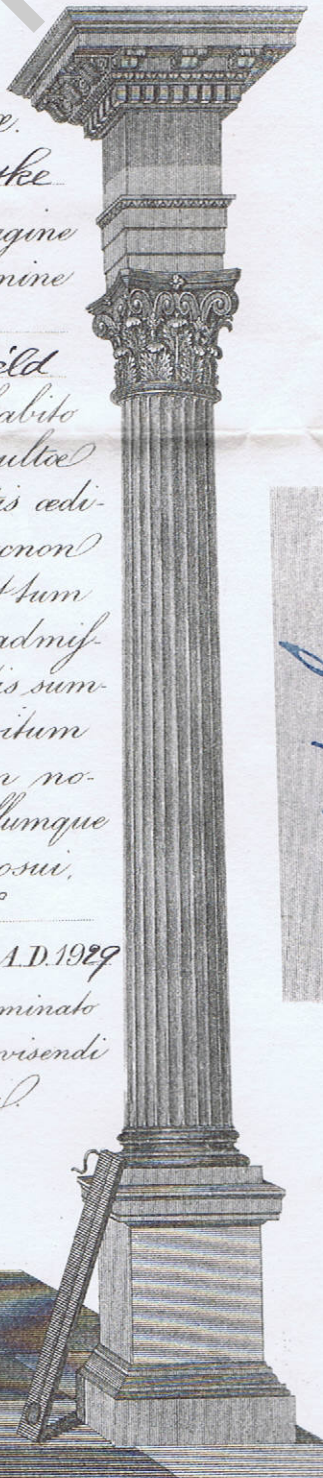 tke
agine
mine
éld
abito
ultæ
is ædi-
cnon
t tum
admis-
is sum-
itum
n no-
llumque
osui.
A.D. 1929
minato
visendi